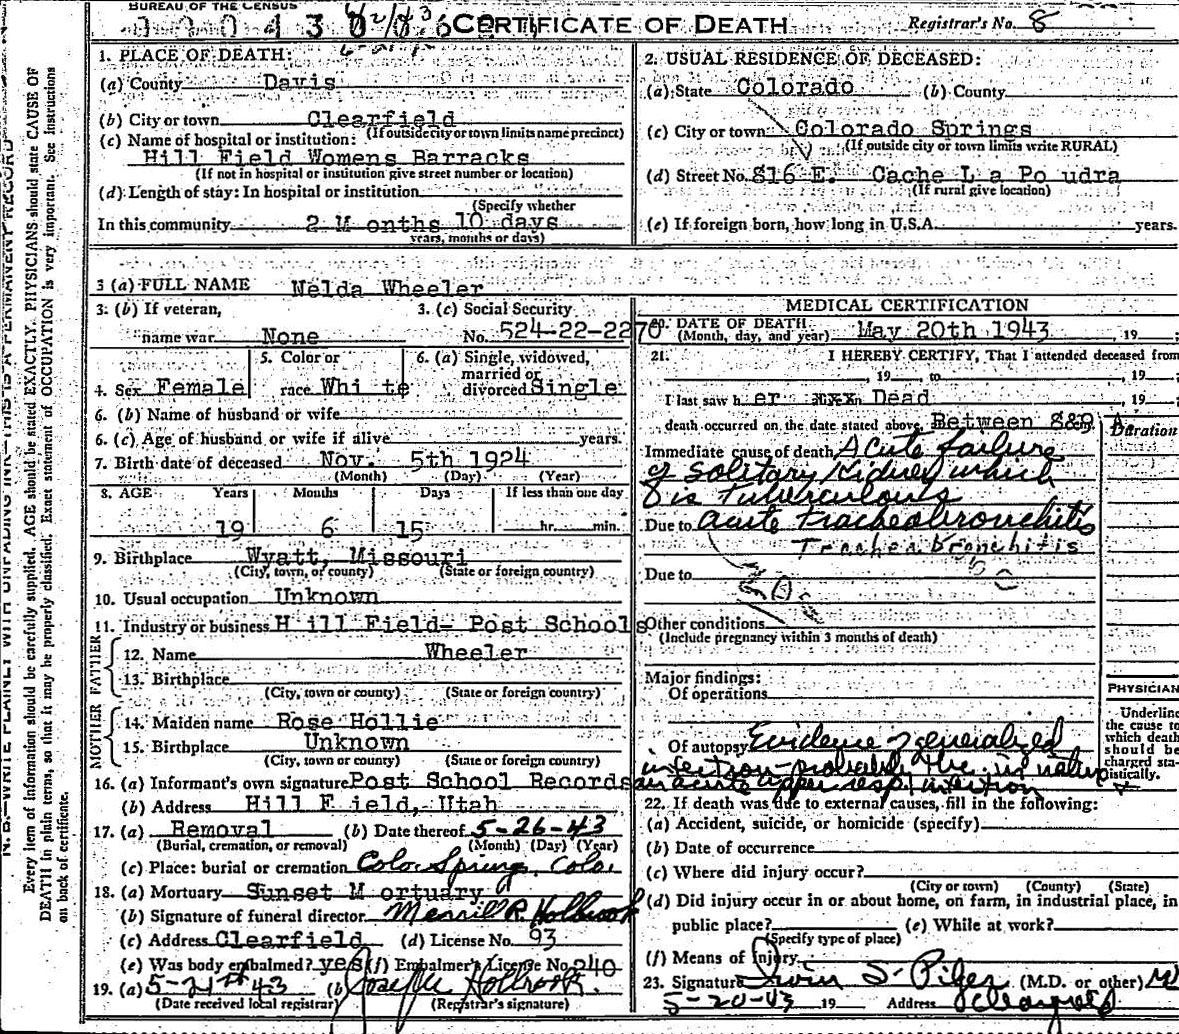 BUREAU OF THE CENSUS
CERTIFICATE OF DEATH Registrar's No. 8
1. PLACE OF DEATH:
(a) County Davis
(b) City or town Clearfield
(If outside city or town limits name precinct)
(c) Name of hospital or institution:
Hill Field Womens Barracks
(If not in hospital or institution give street number or location)
(d) Length of stay: In hospital or institution
(Specify whether
In this community 2 M onths 10 days
years, months or days)
2. USUAL RESIDENCE OF DECEASED:
(a) State Colorado (b) County
(c) City or town Colorado Springs
(If outside city or town limits write RURAL)
(d) Street No. 816 E. Cache L a Po udra
(If rural give location)
(e) If foreign born, how long in U.S.A. years.
3 (a) FULL NAME Nelda Wheeler
3. (b) If veteran, name war None
3. (c) Social Security No. 524-22-2270
4. Sex Female
5. Color or race Whi te
6. (a) Single, widowed, married or divorced Single
6. (b) Name of husband or wife
6. (c) Age of husband or wife if alive years.
7. Birth date of deceased Nov. 5th 1924
(Month) (Day) (Year)
8. AGE Years Months Days If less than one day
19 6 15 hr. min.
9. Birthplace Wyatt, Missouri
(City, town, or county) (State or foreign country)
10. Usual occupation Unknown
11. Industry or business H ill Field- Post Schools
FATHER
12. Name Wheeler
13. Birthplace
(City, town or county) (State or foreign country)
MOTHER
14. Maiden name Rose Hollie
15. Birthplace Unknown
(City, town or county) (State or foreign country)
16. (a) Informant's own signature Post School Records
(b) Address Hill F ield, Utah
17. (a) Removal (b) Date thereof 5-26-43
(Burial, cremation, or removal) (Month) (Day) (Year)
(c) Place: burial or cremation Colo. Spring, Colo.
18. (a) Mortuary Sunset M ortuary
(b) Signature of funeral director Merrill R. Holbrook
(c) Address Clearfield (d) License No. 93
(e) Was body embalmed? yes (f) Embalmer's License No. 240
19. (a) 5-21st 43 (b) Joseph Holbrook.
(Date received local registrar) (Registrar's signature)
MEDICAL CERTIFICATION
20. DATE OF DEATH: May 20th 1943, 19
(Month, day, and year)
21. I HEREBY CERTIFY, That I attended deceased from
, 19 , to , 19 ;
I last saw h er Dead , 19 ;
death occurred on the date stated above, Between 8&9 A.
Duration
Immediate cause of death Acute failure
of solitary Kidney which
is tuberculous
Due to acute tracheobronchitis
Tracheobronchitis
Due to
Other conditions
(Include pregnancy within 3 months of death)
Major findings:
Of operations
Of autopsy Evidence of generalized
infection - probably the. in nature
an acute upper resp. infection
PHYSICIAN
Underline
the cause to
which death
should be
charged sta-
tistically.
22. If death was due to external causes, fill in the following:
(a) Accident, suicide, or homicide (specify)
(b) Date of occurrence
(c) Where did injury occur?
(City or town) (County) (State)
(d) Did injury occur in or about home, on farm, in industrial place, in
public place? (e) While at work?
(Specify type of place)
(f) Means of Injury
23. Signature Irwin S. (M.D. or other) M
5-20-43 19 Address
N. B.—WRITE PLAINLY WITH UNFADING INK—THIS IS A PERMANENT RECORD
Every item of information should be carefully supplied. AGE should be stated EXACTLY. PHYSICIANS should state CAUSE OF
DEATH in plain terms, so that it may be properly classified. Exact statement of OCCUPATION is very important. See instructions
on back of certificate.